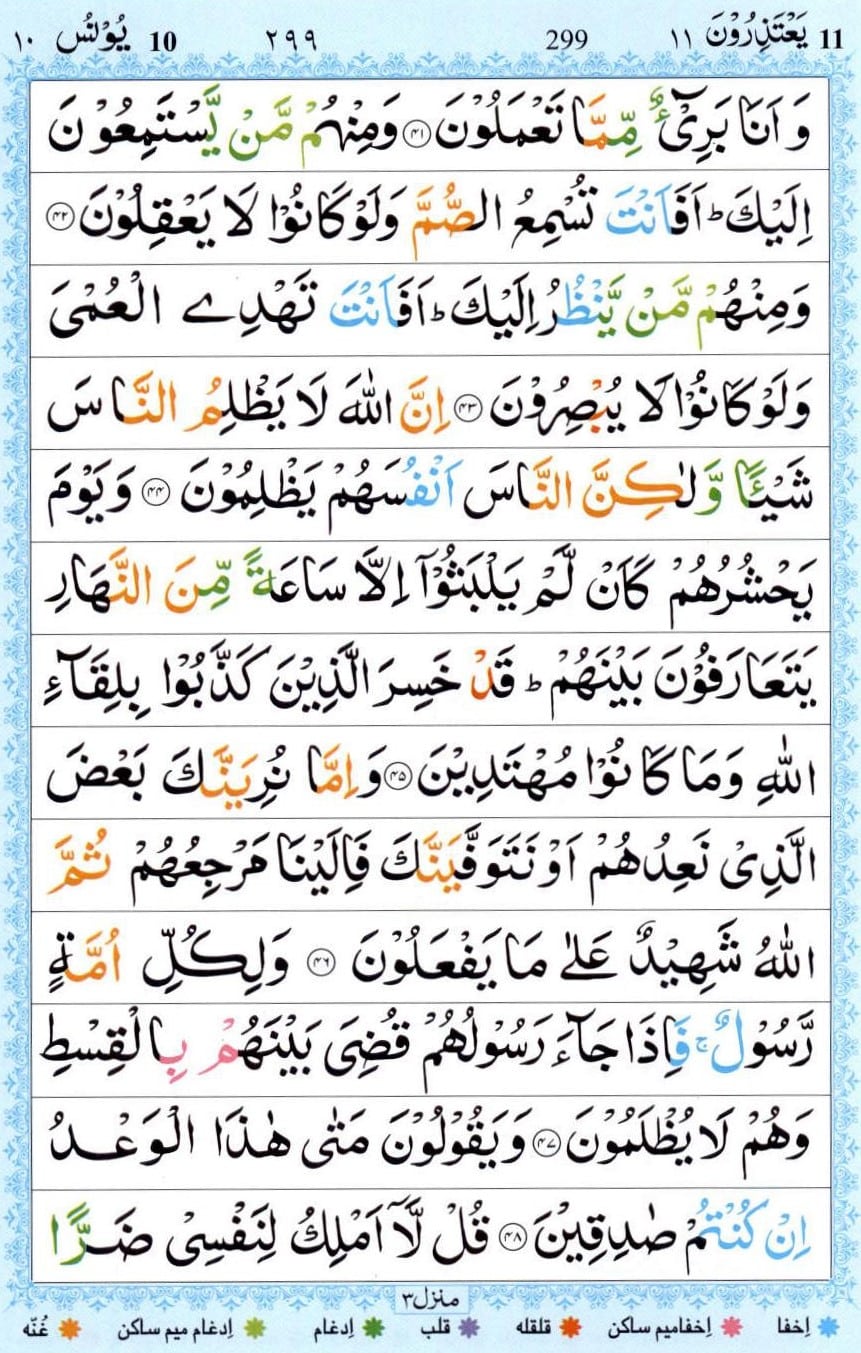 11 یَعْتَذِرُوْنَ ۱۱ 299 ۲۹۹ 10 یُوْنُس ۱۰
وَ اَنَا بَرِیْٓءٌ مِّمَّا تَعْمَلُوْنَ ﴿۴۱﴾ وَمِنْهُمْ مَّنْ یَّسْتَمِعُوْنَ
اِلَیْكَ ؕ اَفَاَنْتَ تُسْمِعُ الصُّمَّ وَلَوْ كَانُوْا لَا یَعْقِلُوْنَ ﴿۴۲﴾
وَمِنْهُمْ مَّنْ یَّنْظُرُ اِلَیْكَ ؕ اَفَاَنْتَ تَهْدِے الْعُمْیَ
وَلَوْ كَانُوْا لَا یُبْصِرُوْنَ ﴿۴۳﴾ اِنَّ اللّٰهَ لَا یَظْلِمُ النَّاسَ
شَیْـًٔا وَّلٰكِنَّ النَّاسَ اَنْفُسَهُمْ یَظْلِمُوْنَ ﴿۴۴﴾ وَیَوْمَ
یَحْشُرُهُمْ كَاَنْ لَّمْ یَلْبَثُوْۤا اِلَّا سَاعَةً مِّنَ النَّهَارِ
یَتَعَارَفُوْنَ بَیْنَهُمْ ؕ قَدْ خَسِرَ الَّذِیْنَ كَذَّبُوْا بِلِقَآءِ
اللّٰهِ وَمَا كَانُوْا مُهْتَدِیْنَ ﴿۴۵﴾ وَاِمَّا نُرِیَنَّكَ بَعْضَ
الَّذِیْ نَعِدُهُمْ اَوْ نَتَوَفَّیَنَّكَ فَاِلَیْنَا مَرْجِعُهُمْ ثُمَّ
اللّٰهُ شَهِیْدٌ عَلٰی مَا یَفْعَلُوْنَ ﴿۴۶﴾ وَلِكُلِّ اُمَّةٍ
رَّسُوْلٌ ۚ فَاِذَا جَآءَ رَسُوْلُهُمْ قُضِیَ بَیْنَهُمْ بِالْقِسْطِ
وَهُمْ لَا یُظْلَمُوْنَ ﴿۴۷﴾ وَیَقُوْلُوْنَ مَتٰی هٰذَا الْوَعْدُ
اِنْ كُنْتُمْ صٰدِقِیْنَ ﴿۴۸﴾ قُلْ لَّاۤ اَمْلِكُ لِنَفْسِیْ ضَرًّا
منزل۳
اِخفا اِخفامیم ساکن قلقله قلب اِدغام اِدغام میم ساکن غُنّه